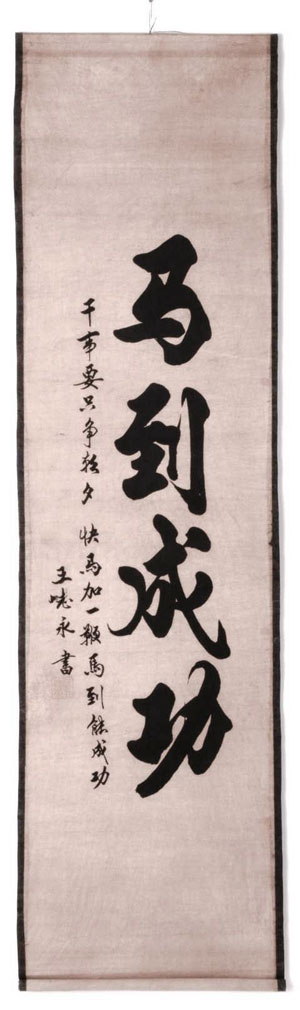 马到成功
干事要只争朝夕 快馬加一鞭馬到能成功
王 永書